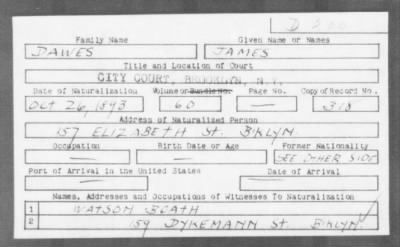 D 200
Family Name Given Name or Names
DAWES JAMES
Title and Location of Court
CITY COURT, BROOKLYN, N.Y.
Date of Naturalization Volume or Bundle No. Page No. Copy of Record No.
OCT 26, 1893 60 — 318
Address of Naturalized Person
157 ELIZABETH St. BKLYN.
Occupation Birth Date or Age Former Nationality
— — SEE OTHER SIDE
Port of Arrival in the United States Date of Arrival
— —
Names, Addresses and Occupations of Witnesses To Naturalization
1 WATSON BOATH
2 159 DYKEMANN St. BKLYN